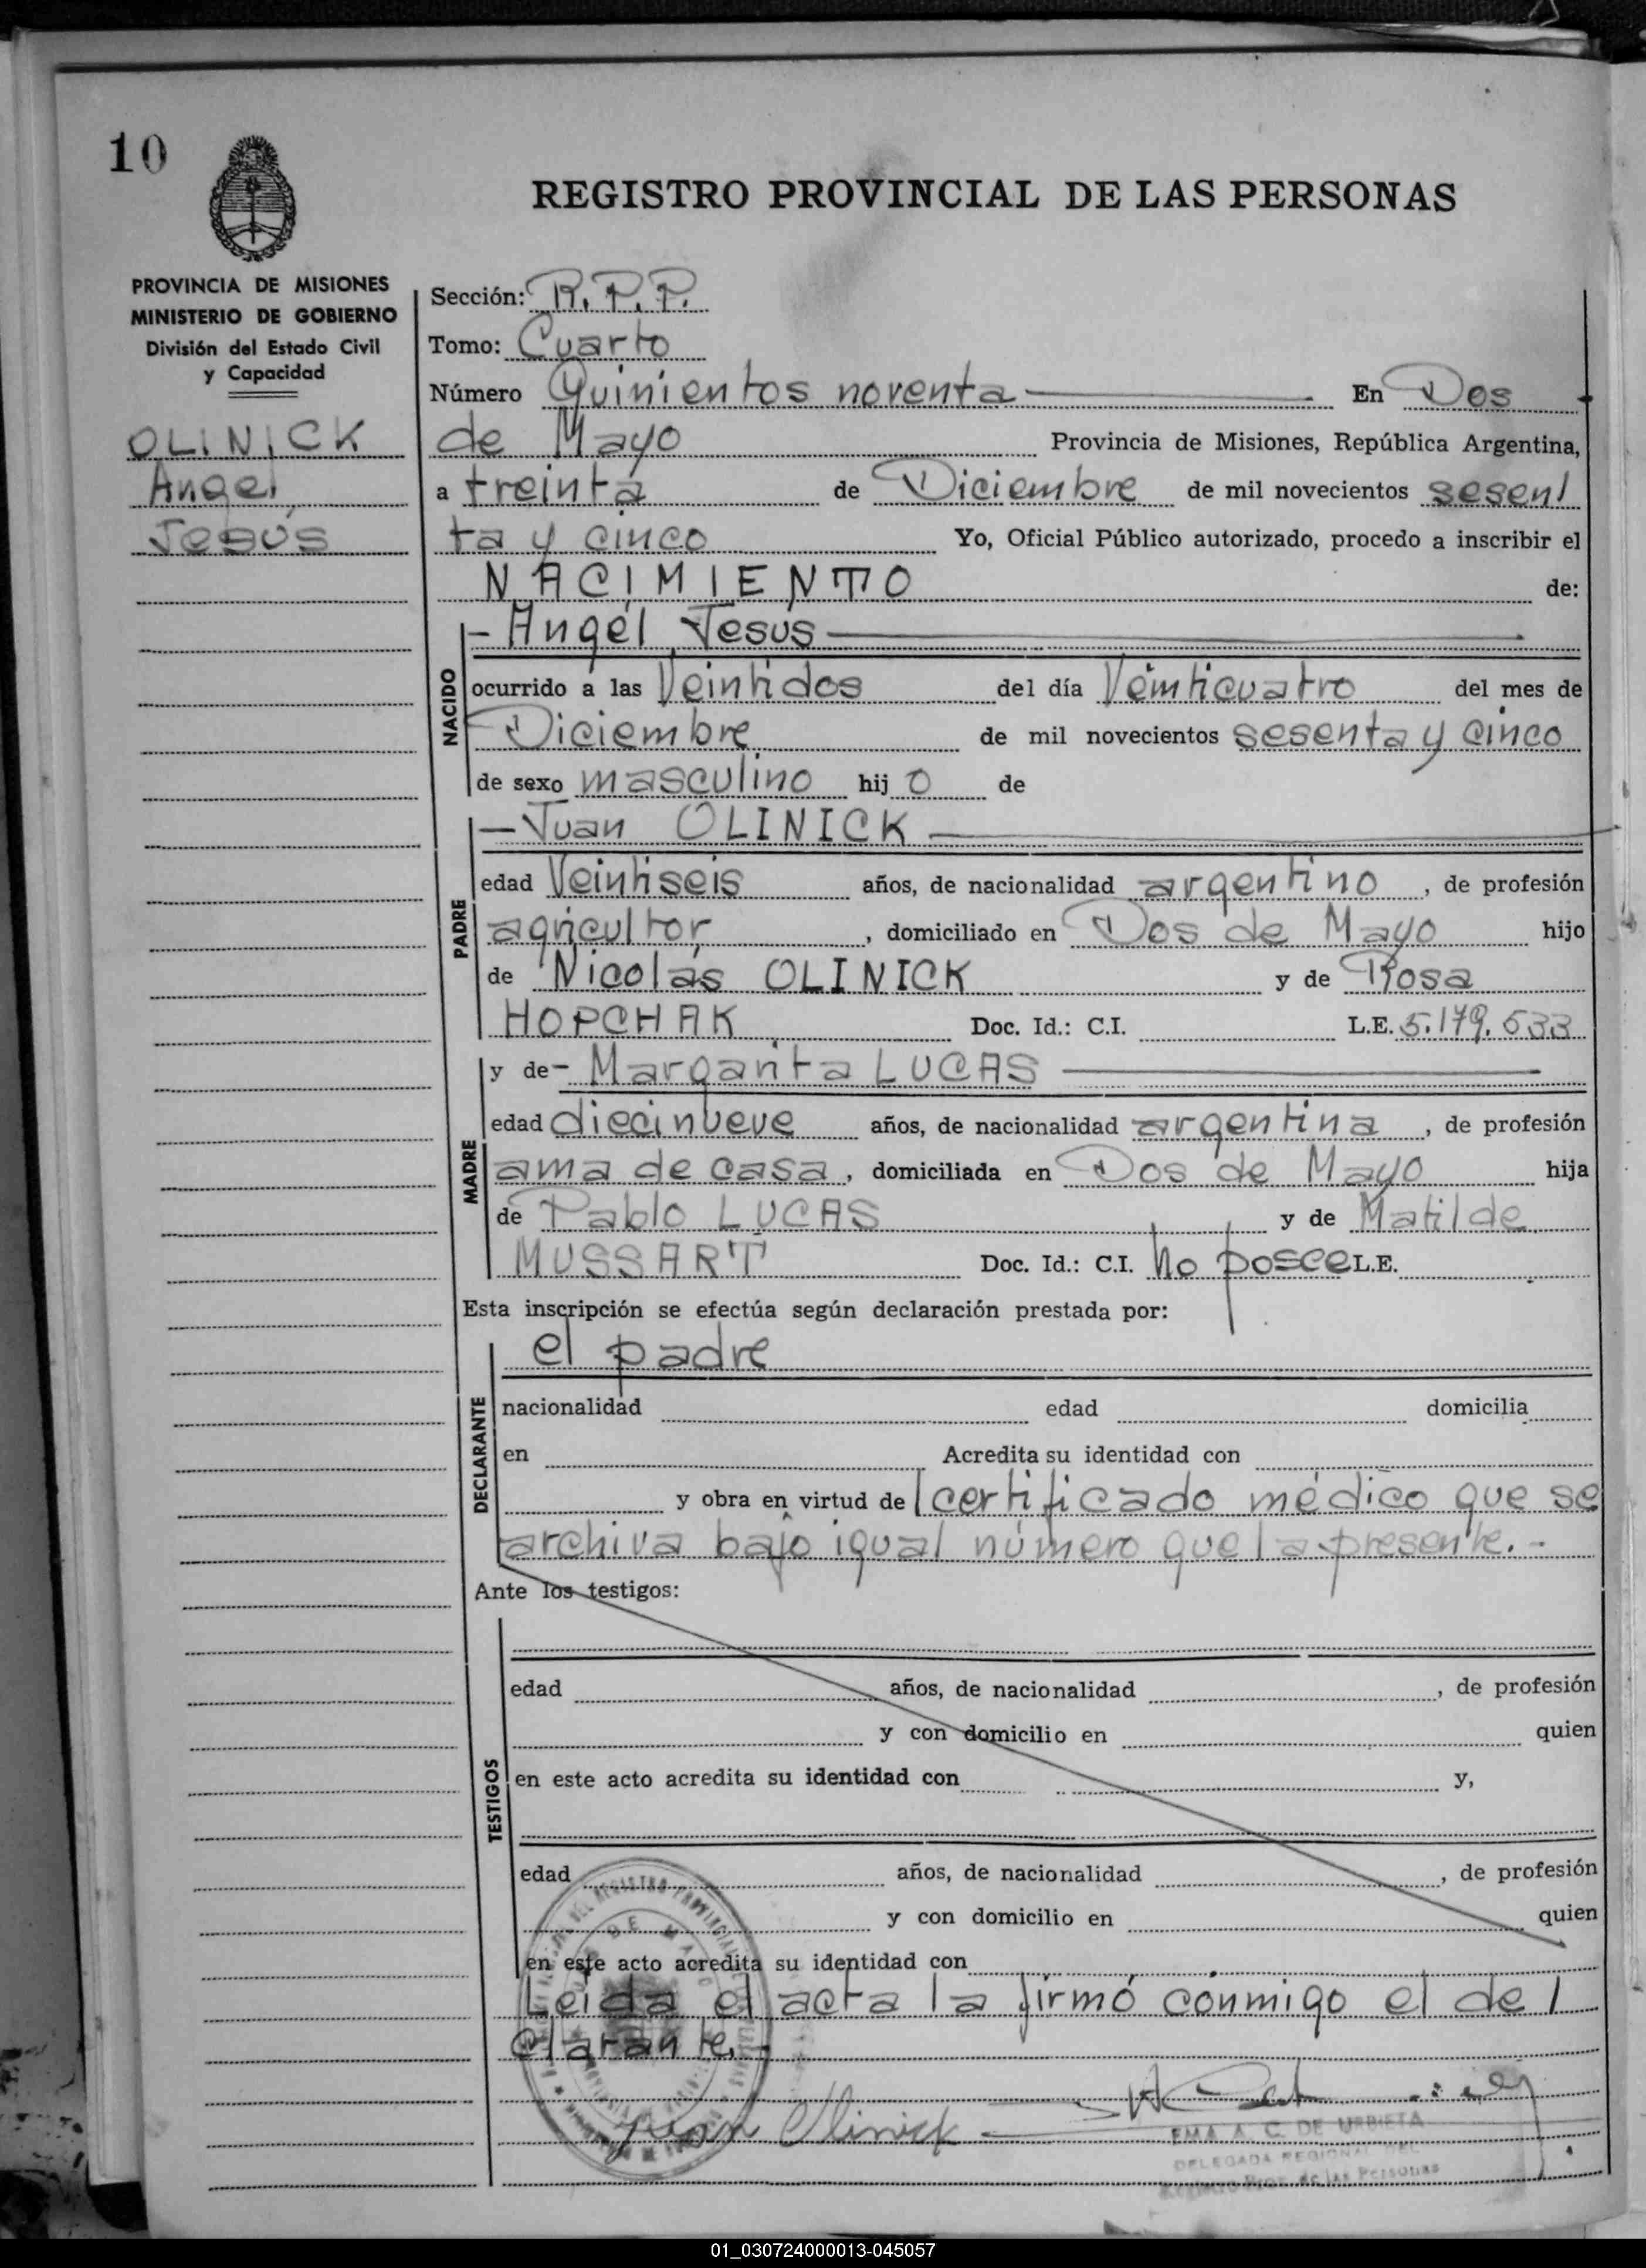 10
REGISTRO PROVINCIAL DE LAS PERSONAS
PROVINCIA DE MISIONES
MINISTERIO DE GOBIERNO
División del Estado Civil
y Capacidad
OLINICK
Angel
Jesús
Sección: R.P.P.
Tomo: Cuarto
Número Quinientos noventa En Dos
de Mayo Provincia de Misiones, República Argentina,
a treinta de Diciembre de mil novecientos sesen/
ta y cinco Yo, Oficial Público autorizado, procedo a inscribir el
NACIMIENTO de:
NACIDO
- Angel Jesus
ocurrido a las Veintidos del día Veinticuatro del mes de
Diciembre de mil novecientos sesenta y cinco
de sexo masculino hij o de
PADRE
- Juan OLINICK
edad Veintiseis años, de nacionalidad argentino, de profesión
agricultor, domiciliado en Dos de Mayo hijo
de Nicolás OLINICK y de Rosa
HOPCHAK Doc. Id.: C.I. L.E. 5.179.533
MADRE
y de - Margarita LUCAS
edad diecinueve años, de nacionalidad argentina, de profesión
ama de casa, domiciliada en Dos de Mayo hija
de Pablo LUCAS y de Matilde
MUSSART Doc. Id.: C.I. No posee L.E.
Esta inscripción se efectúa según declaración prestada por:
DECLARANTE
el padre
nacionalidad edad domicilia
en Acredita su identidad con
y obra en virtud de certificado médico que se
archiva bajo igual número que la presente.-
Ante los testigos:
TESTIGOS
edad años, de nacionalidad , de profesión
y con domicilio en quien
en este acto acredita su identidad con y,
edad años, de nacionalidad , de profesión
y con domicilio en quien
en este acto acredita su identidad con
Leida el acta la firmó conmigo el de/
clarante.-
Juan Olinick
EMA A. C. DE URBIETA
DELEGADA REGIONAL
Registro Prov. de las Personas
01_030724000013-045057